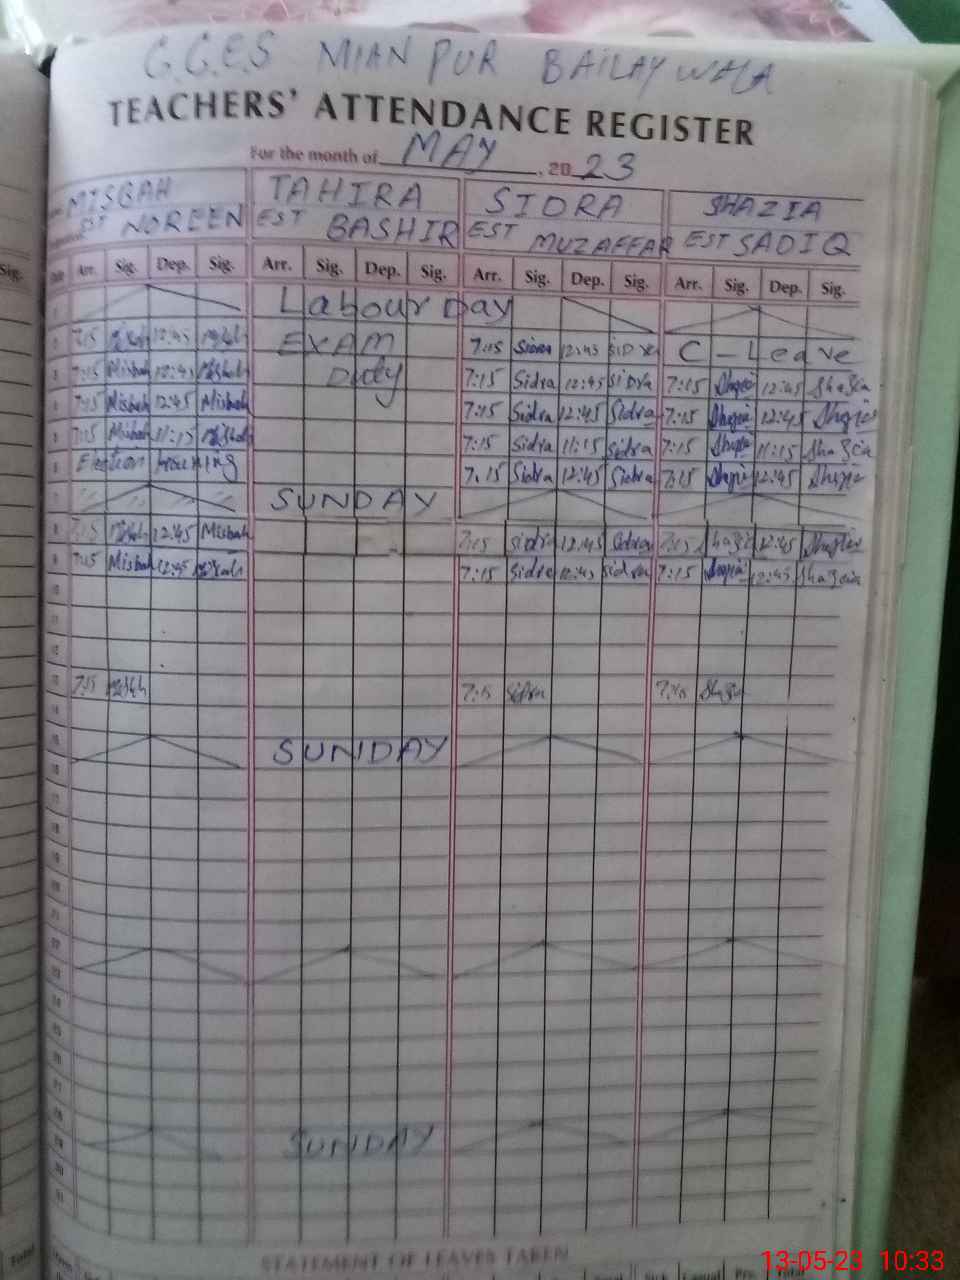 G.G.E.S MIAN PUR BAILAY WALA
TEACHERS' ATTENDANCE REGISTER
For the month of MAY, 2023
MISBAH TAHIRA SIDRA SHAZIA
EST NOREEN EST BASHIR EST MUZAFFAR EST SADIQ
Sig. Arr. Sig. Dep. Sig. Arr. Sig. Dep. Sig. Arr. Sig. Dep. Sig. Arr. Sig. Dep. Sig.
1 Labour Day
2 7:15 Misbah 12:45 Misbah EXAM 7:15 Sidra 12:45 Sidra C-Leave
3 7:15 Misbah 12:45 Misbah Duty 7:15 Sidra 12:45 Sidra 7:15 Shazia 12:45 Shazia
4 7:15 Misbah 12:45 Misbah 7:15 Sidra 12:45 Sidra 7:15 Shazia 12:45 Shazia
5 7:15 Misbah 11:15 Misbah 7:15 Sidra 11:15 Sidra 7:15 Shazia 11:15 Shazia
6 7:15 Sidra 12:45 Sidra 7:15 Shazia 12:45 Shazia
7 SUNDAY
8 7:15 Misbah 12:45 Misbah 7:15 Sidra 12:45 Sidra 7:15 Shazia 12:45 Shazia
9 7:15 Misbah 12:45 Misbah 7:15 Sidra 12:45 Sidra 7:15 Shazia 12:45 Shazia
10
11
12
13 7:15 Misbah 7:15 Sidra 7:15 Shazia
14
SUNDAY
15
16
17
18
19
20
21
22
23
24
25
26
27
28
SUNDAY
29
30
31
STATEMENT OF LEAVES TAKEN
Total
13-05-23 10:33